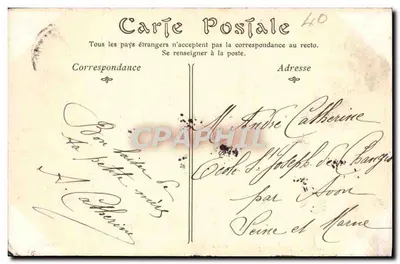 40
Carte Postale
Tous les pays étrangers n'acceptent pas la correspondance au recto.
Se renseigner à la poste.
Correspondance
Adresse
Bon baiser de
ta petite mère
A. Catherine
M. André Catherine
Ecole St Joseph des Changis
par Avon
Seine et Marne
CPRAMA